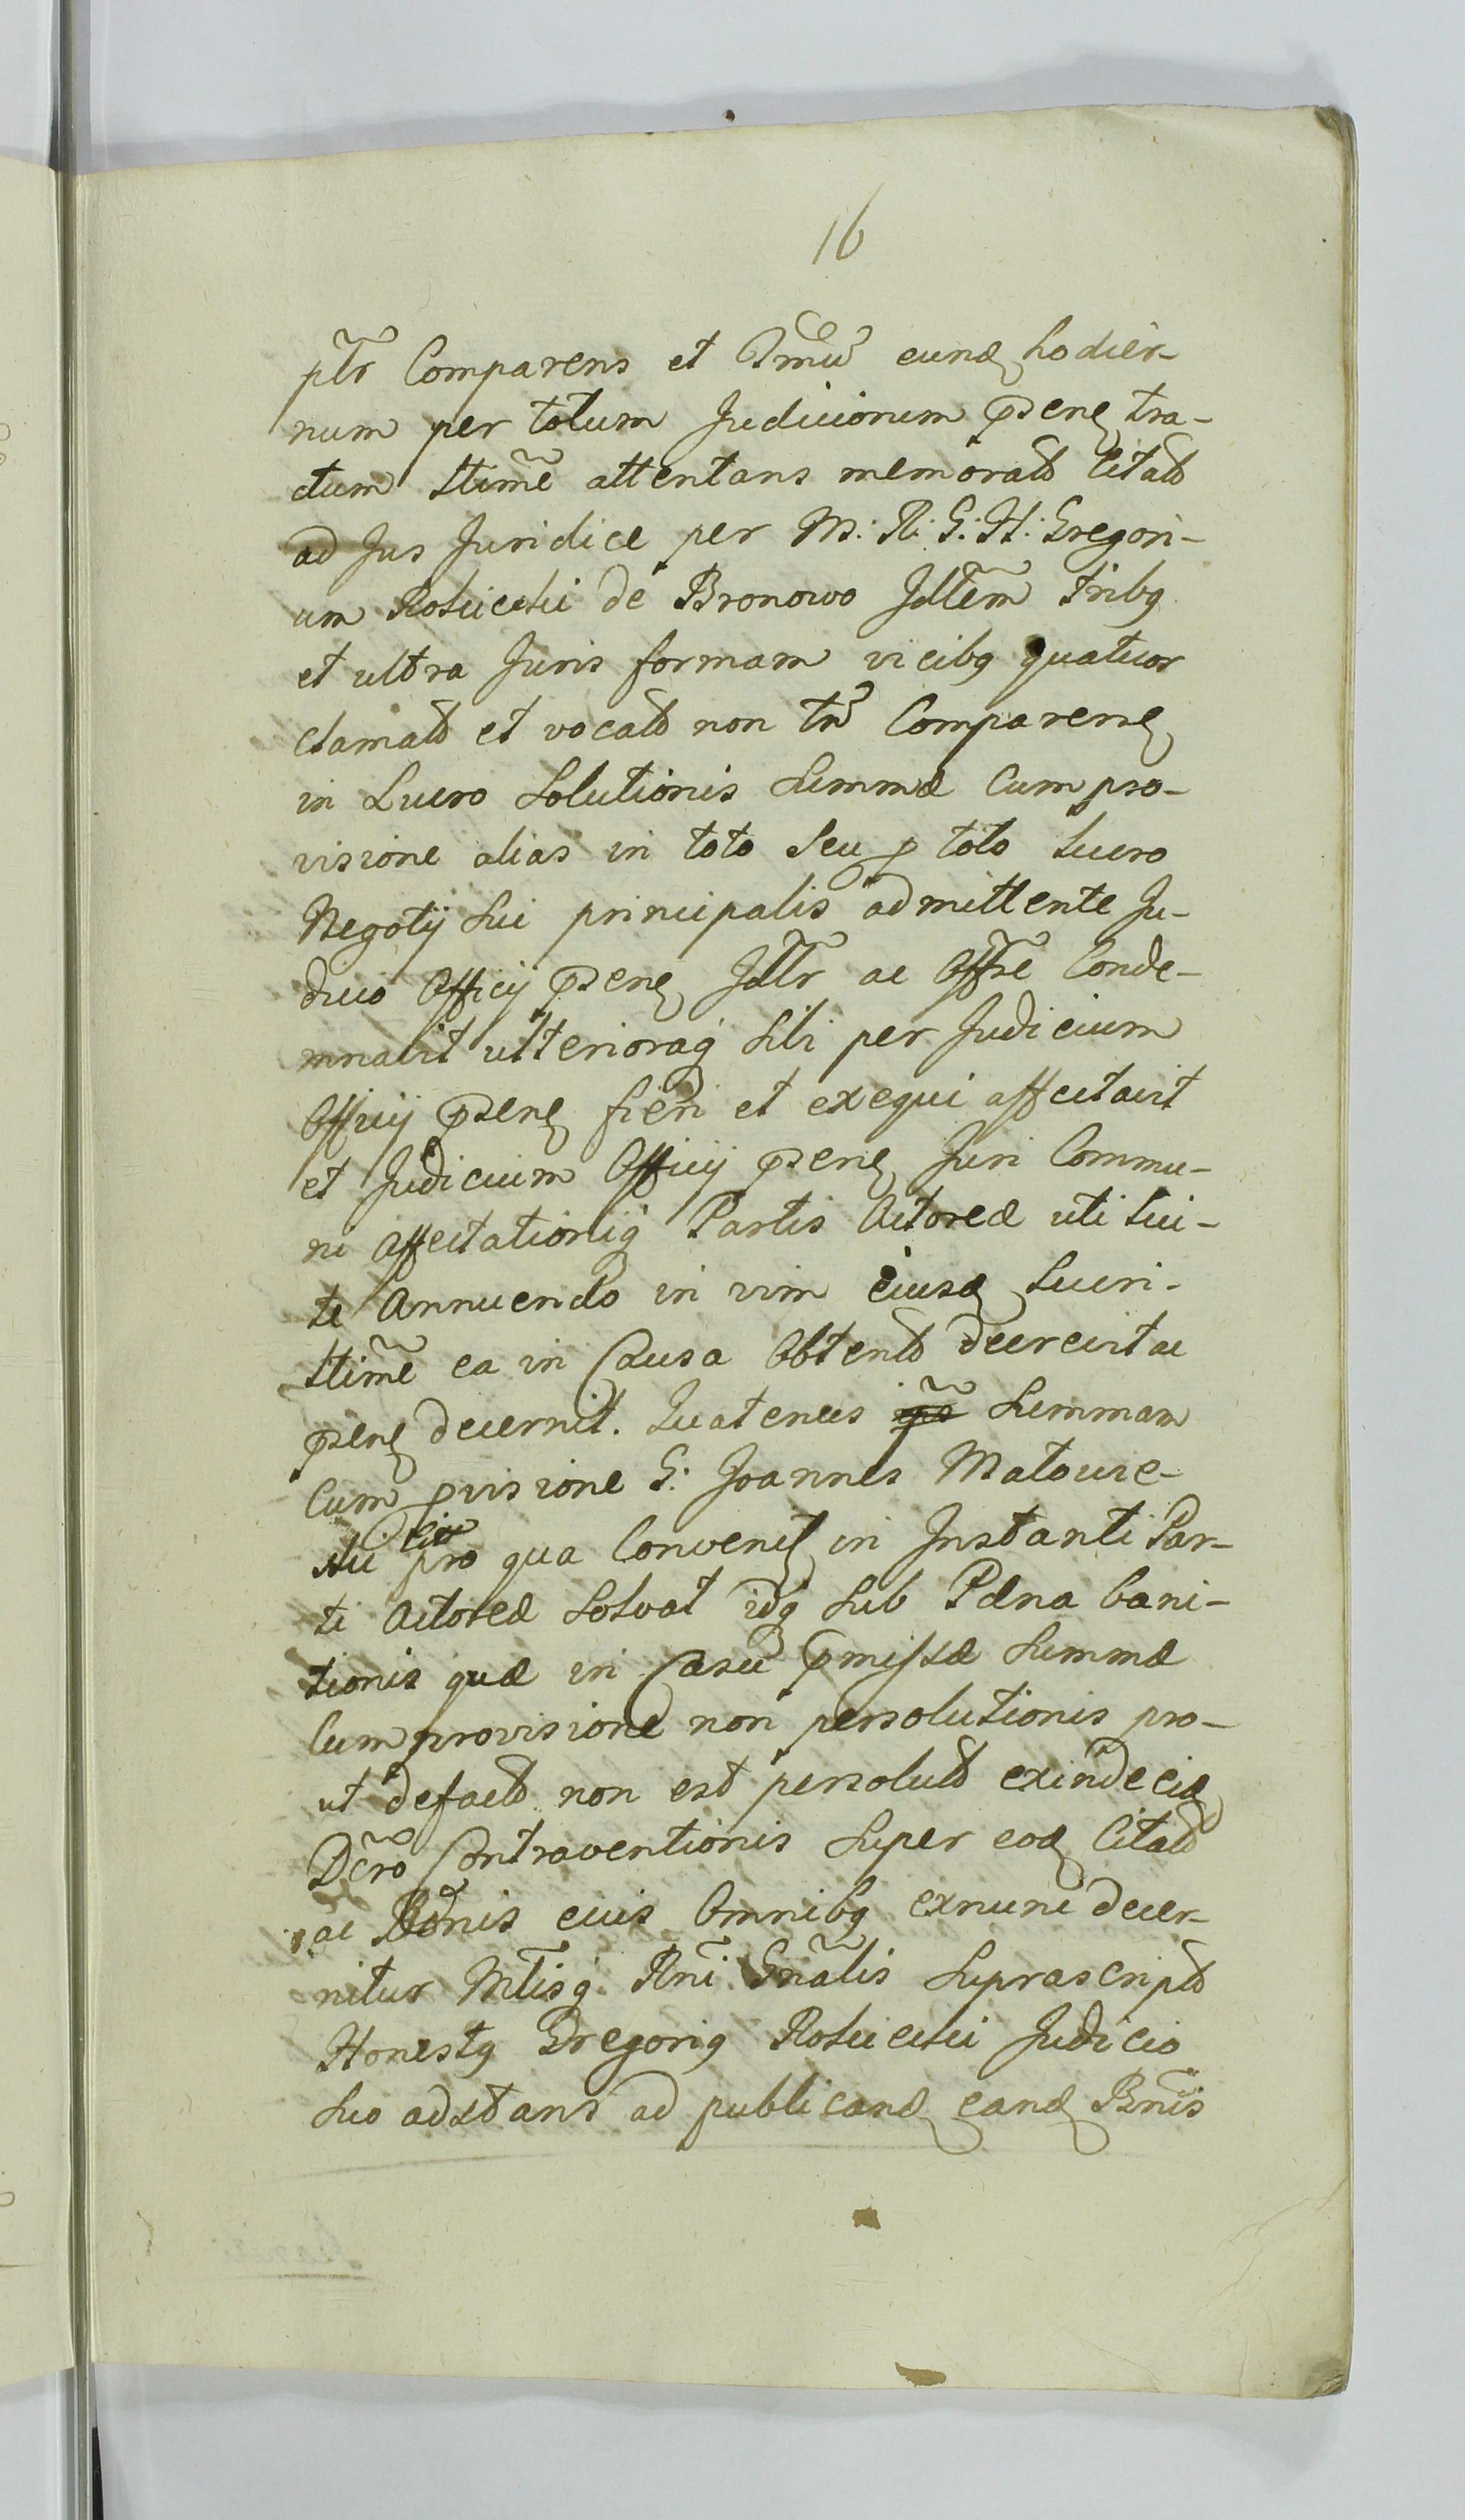 16
pltr Comparens et Termu eund hodier-
num per totum Judiciorum psene tra-
ctum ltime attentans memorato Citato
ad Jus Juridice per M: R: G: H: Gregori-
um Rosucchi de Bronowo Jdltem tribq
et ultra Juris formam vicibq quatuor
clamato et vocato non tn Comparene
in Lucro Solutionis Summæ Cum pro-
visione alias in toto Seu p toto Lucro
Negotij Sui principalis admittente Ju-
dicio Officij psene Jdltr ac Offse Conde-
mnavit ulterioraq Sibi per Judicium
Officij psene fieri et exequi affectavit
et Judicium Officij psene Juri Commu-
ni Affectationiq Partis Actoreæ uti lici-
te Annuendo in vim eiusd Lucri
ltime ea in Causa Obtento decrevit ac
psene decernit. Quatenus Summam
Cum pvisione G: Joannes Matowie-
cki Citt pro qua Convenit in Instanti Par-
ti Actoreæ Solvat idq Sub Pæna bani-
tionis quæ in Casu pmissæ Summæ
Cum provisione non persolutionis pro-
ut defacto non est persoluto exinde eid
Dcro Contraventionis Super eod Citato
ac Bonis eius Omnibq exnunc decer-
nitur Mltisq Rni Gnalis Suprascripto
Honestq Gregoriq Rosucchi Judicio
Suo adstans ad publicand eand Bnis